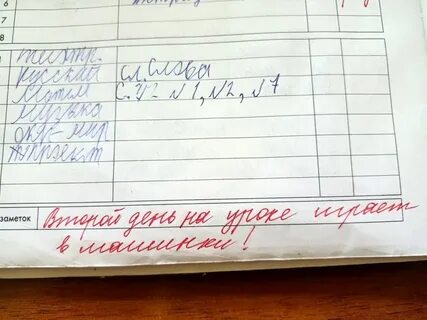 6
7
8
театр.
русский сл. слова
матем с. 42 № 1, № 2, № 7
музыка
окр-мир
заметок Второй день на уроке играет
в машинки!